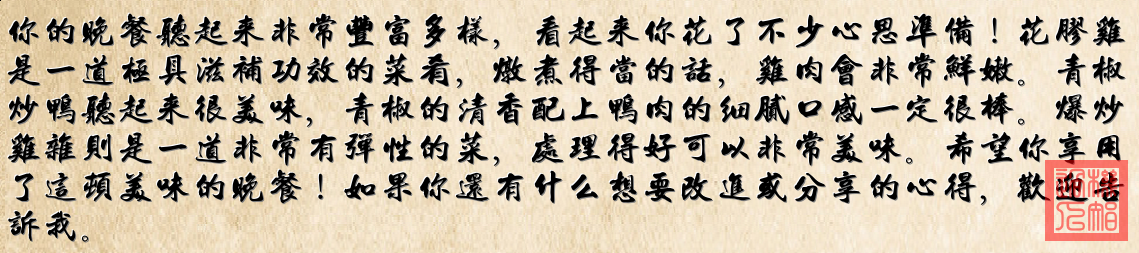 你的晚餐聽起來非常豐富多樣，看起來你花了不少心思準備！花膠雞
是一道極具滋補功效的菜肴，燉煮得當的話，雞肉會非常鮮嫩。青椒
炒鴨聽起來很美味，青椒的清香配上鴨肉的細膩口感一定很棒。爆炒
雞雜則是一道非常有彈性的菜，處理得好可以非常美味。希望你享用
了這頓美味的晚餐！如果你還有什么想要改進或分享的心得，歡迎告
訴我。